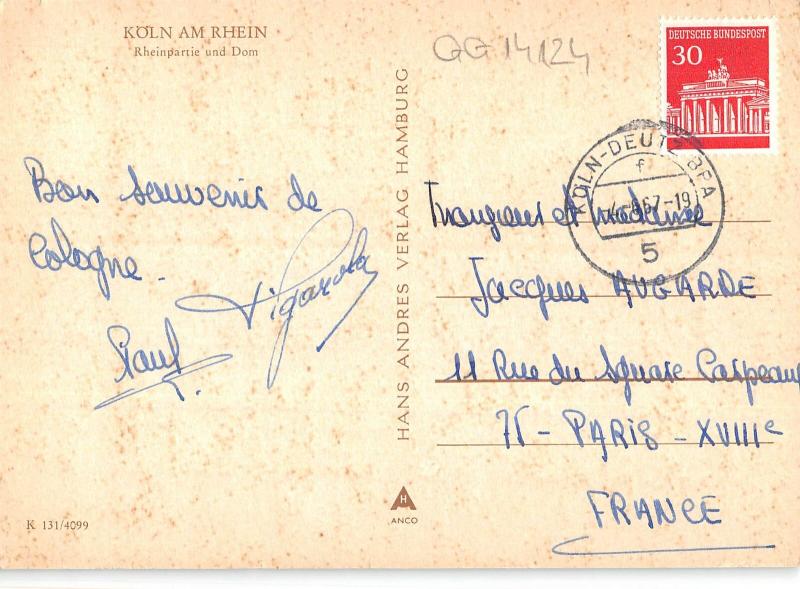 KÖLN AM RHEIN
Rheinpartie und Dom
GG14124
DEUTSCHE BUNDESPOST
30
KÖLN-DEUTZ BPA
f
67-19
5
Bon souvenir de
Cologne.
Paul
HANS ANDRES VERLAG HAMBURG
et madame
Jacques AUGARDE
11 Rue du Square Carpeaux
75 - PARIS - XVIIIe
FRANCE
H
ANCO
K 131/4099